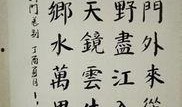 門外來從
野盡江入
天鏡雲生
鄉水萬里
門送別 丁酉